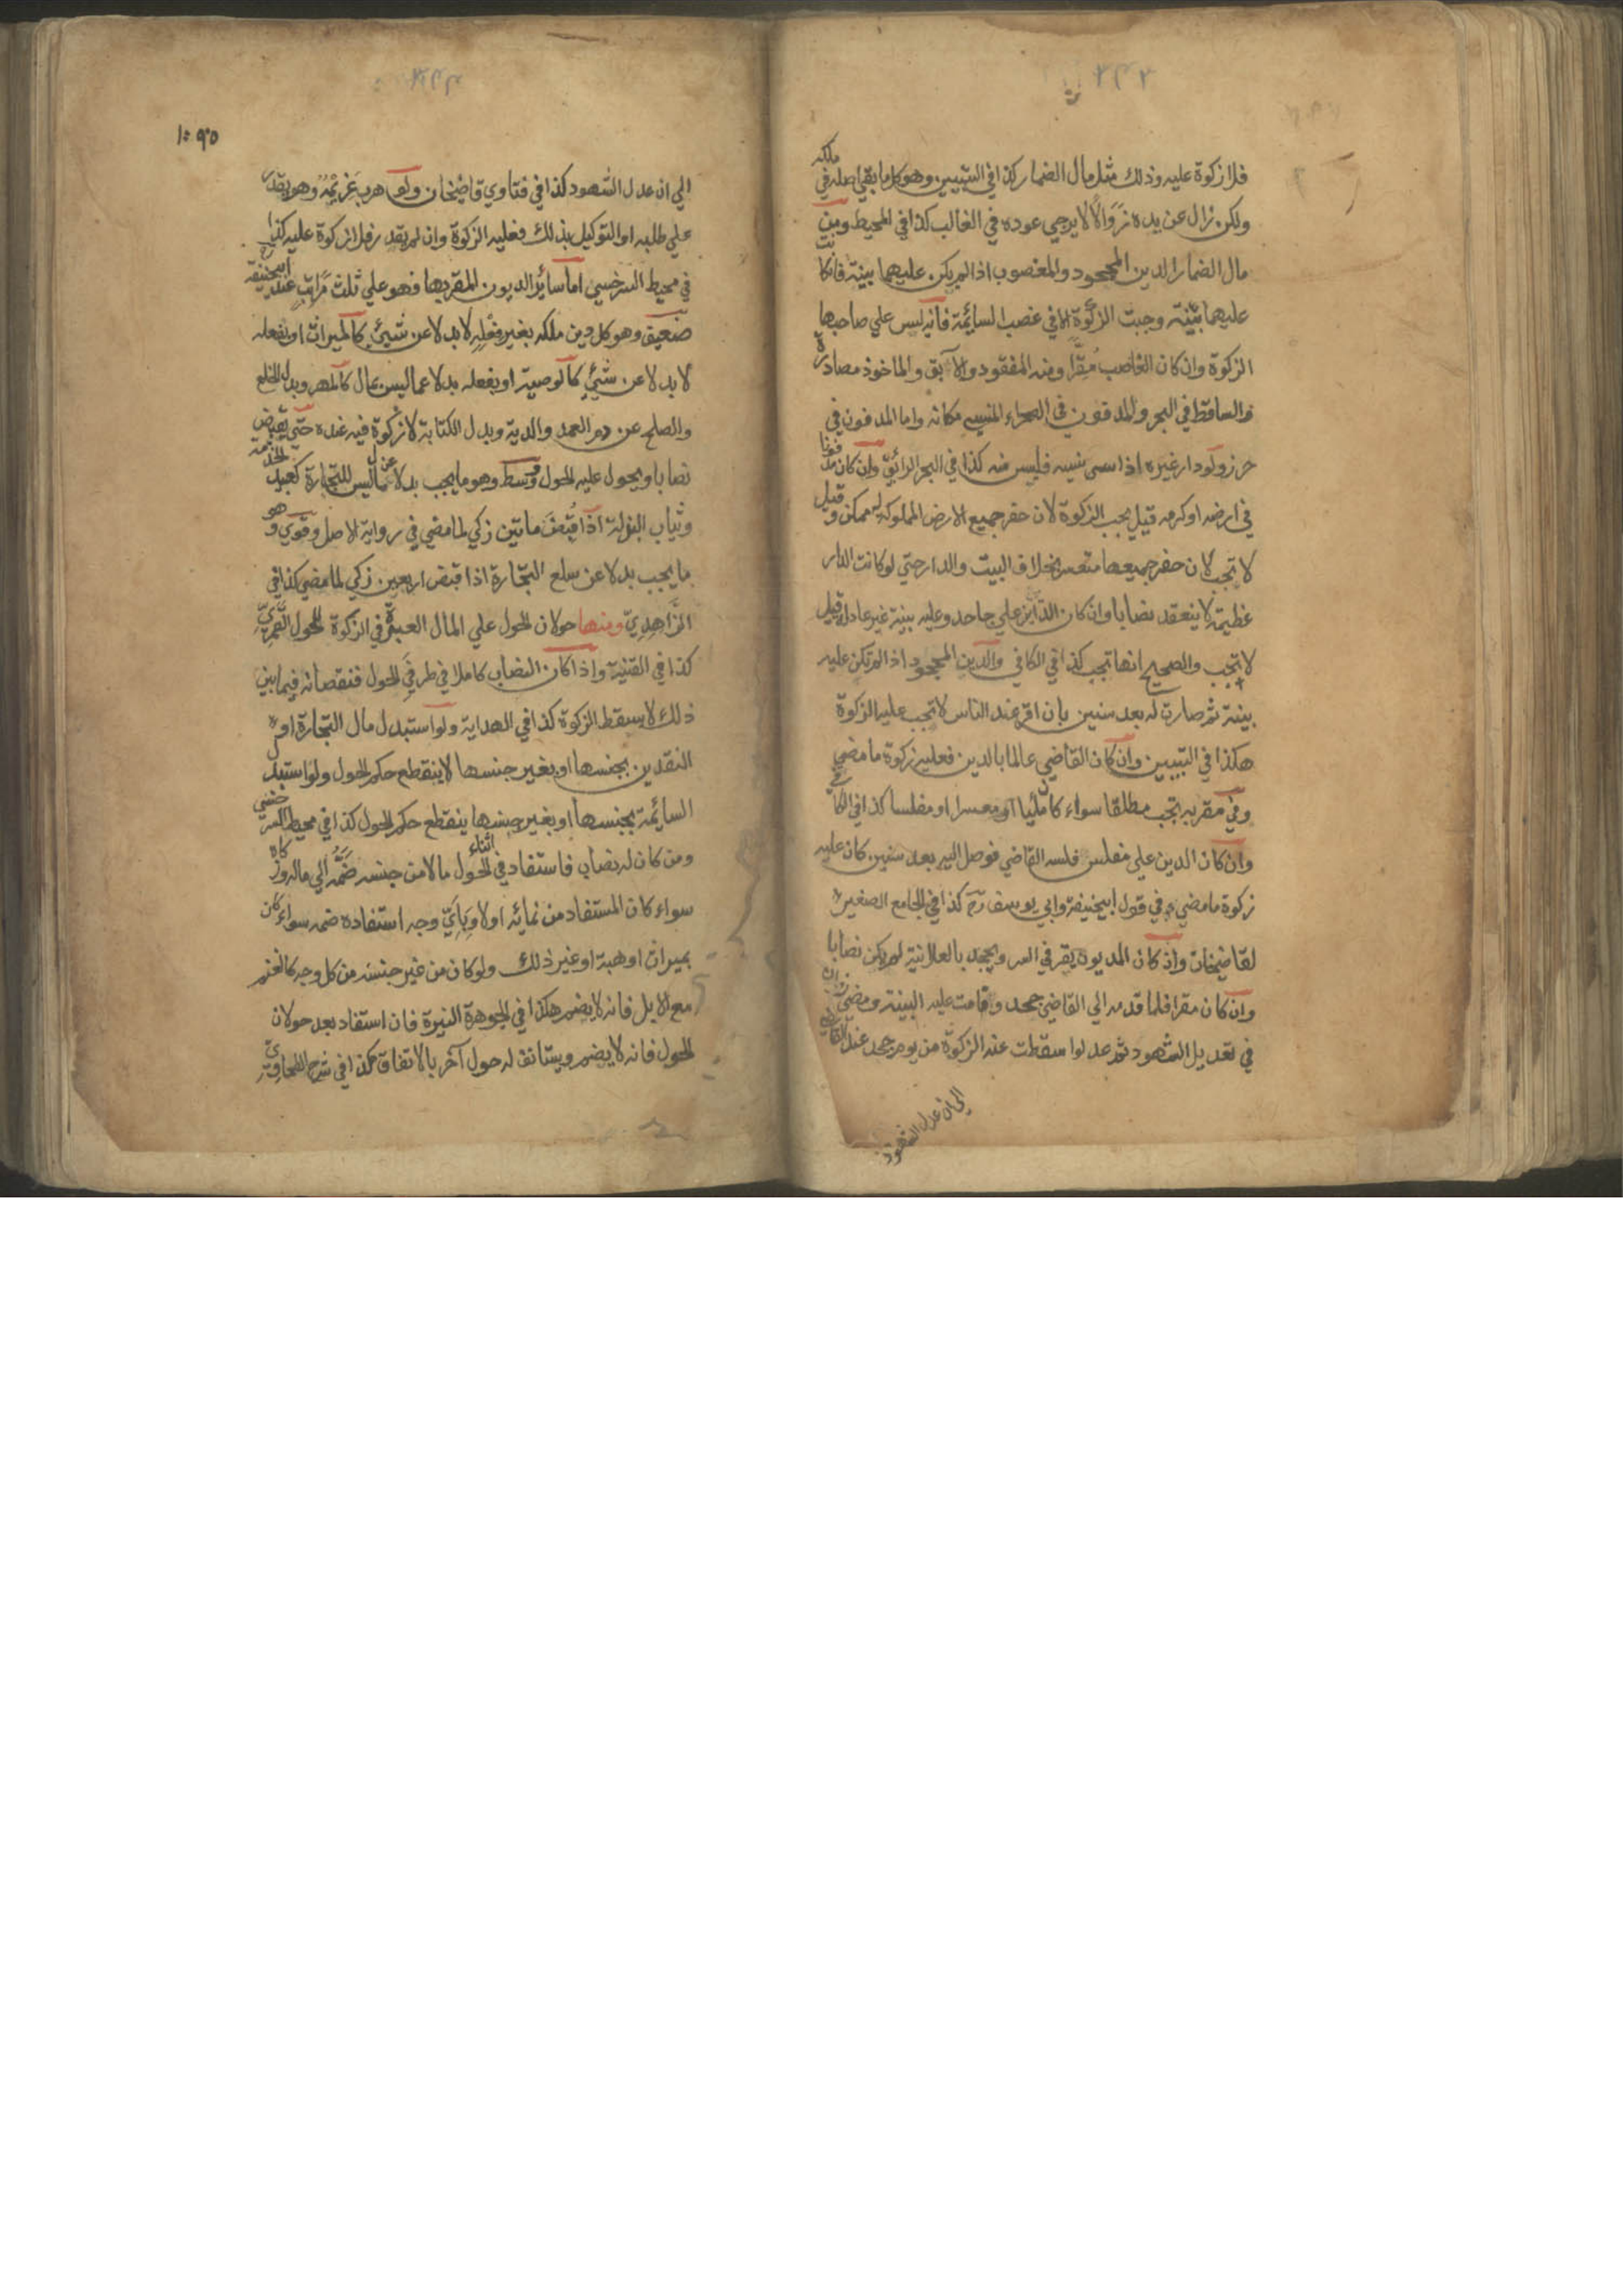 ٢٤٣
فلا زكوة عليه وذلك مثل مال الضمار كذا في التبيين وهو كل ما بقي اصله في ملكه
ولكن زال عن يده زَوَالًا لا يرجي عوده في الغالب كذا في المحيط ومن
مال الضمار الدين المجحود والمغصوب اذا لم يكن عليهما بينة فان كانت
عليهما بيّنة وجبت الزكوة الا في غصب السائمة فانه ليس علي صاحبها
الزكوة وان كان الغاصب مُقِرًّا ومنه المفقود والآبق والماخوذ مصادرة
والساقط في البحر والمدفون في الصحراء المنسي مكانه واما المدفون في
حرز ولو دار غيره اذا نسيه فليس منه كذا في البحر الرائق وان كان مدفونا
في ارضه او كرمه قيل يجب الزكوة لان حفر جميع الارض المملوكة له ممكن وقيل
لا تجب لان حفر جميعها متعسر بخلاف البيت والدار حتي لو كانت الدار
عظيمة لا ينعقد نصابا وان كان الدّين علي جاحد وعليه بينة غير عادلة قيل
لا تجب والصحيح انها تجب كذا في الكافي والدين المجحود اذا لم تكن عليه
بينة ثم صارت له بعد سنين بان اقر عند الناس لا تجب عليه الزكوة
هكذا في التبيين وان كان القاضي عالما بالدين فعليه زكوة ما مضي
وفي مقر به تجب مطلقا سواء كان مليّا او معسرا او مفلسا كذا في الكافي
وان كان الدين علي مفلس فلسه القاضي فوصل اليه بعد سنين كان عليه
زكوة ما مضي في قول ابيحنيفة وابي يوسف رح كذا في الجامع الصغير
لقاضيخان وان كان المديون يقر في السر ويجحد بالعلانية لم يكن نصابا
وان كان مقرا فلما قدمه الي القاضي جحد وقامت عليه البينة ومضي زمان
في تعديل الشهود ثم عدلوا سقطت عنه الزكوة من يوم جحد عند القاضي
الي ان عدل الشهود
٢٤٤
الي ان عدل الشهود كذا في فتاوي قاضيخان ولو هرب غريمُهُ وهو يقدر
علي طلبه او التوكيل بذلك فعليه الزكوة وان لم يقدر فلا زكوة عليه كذا
في محيط السرخسي اما سائر الديون المقر بها فهو علي ثلث مراتب عند ابيحنيفة رح
ضعيف وهو كل دين ملكه بغير فعله لا بدلا عن شيئ كالميراث او بفعله
لا بدلا عن شيئ كالوصية او بفعله بدلا عما ليس بمال كالمهر وبدل الخلع
والصلح عن دم العمد والدية وبدل الكتابة لا زكوة فيه عنده حتي يقبض
نصابا ويحول عليه الحول ووسط وهو ما يجب بدلا عن مال ليس للتجارة كعبيد الخدمة
وثياب البذلة اذا قبض مائتين زكي لما مضي في رواية الاصل وقوي وهو
ما يجب بدلا عن سلع التجارة اذا قبض اربعين زكي لما مضي كذا في
الزّاهِدِيّ ومنها حولان الحول علي المال العبرة في الزكوة للحول القمريّ
كذا في القنية واذا كان النصاب كاملا في طرفي الحول فنقصانه فيما بين
ذلك لا يسقط الزكوة كذا في الهداية ولو استبدل مال التجارة او
النقدين بجنسها او بغير جنسها لا ينقطع حكم الحول ولو استبدل
السائمة بجنسها او بغير جنسها ينقطع حكم الحول كذا في محيط السرخسي
ومن كان له نصاب فاستفاد في اثناء الحول مالا من جنسه ضَمَّه الي ماله وزكاه
سواء كان المستفاد من نمائه او لا وبِأَيّ وجه استفاده ضمه سواء كان
بميراث او هبة او غير ذلك ولو كان من غير جنسه من كل وجه كالغنم
مع الابل فانه لا يضم هكذا في الجوهرة النيرة فان استفاد بعد حولان
الحول فانه لا يضم ويستانف له حول آخر بالاتفاق هكذا في شرح الطحاويّ